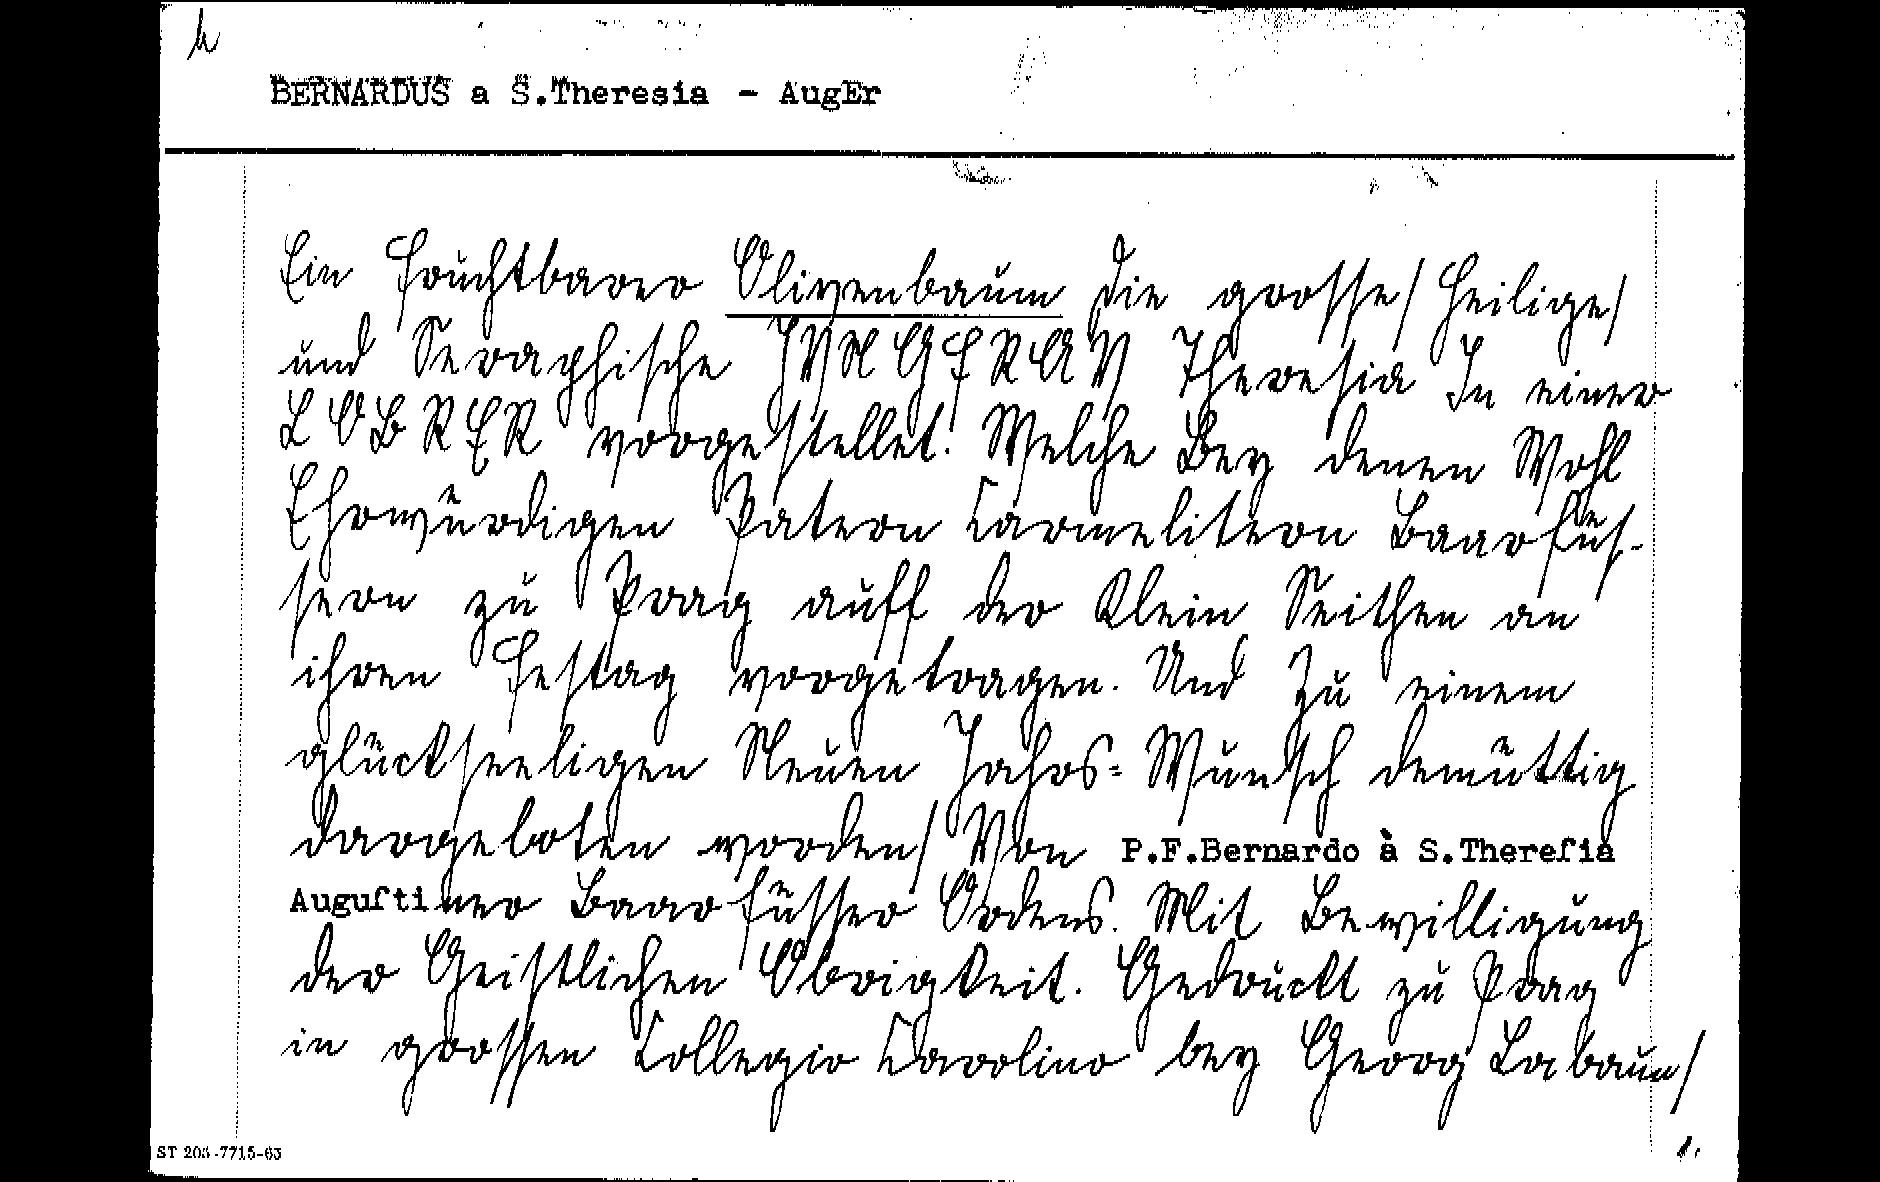 BERNARDUS a S.Theresia - AugEr
Ein fruchtbarer Olivenbaum die grosse/ Heilige/
und Seraphische JVNGFRAV Theresia In einer
LOBRER vorgestellet. Welche Bey denen Wohl
Ehrwürdigen Patern Carmelitern Baarfüs-
sern zu Prag auff der Klein Seithen an
ihren Festag vorgetragen. Und Zu einem
glückseeligen Neuen Jahrs= Wunsch demüttig
dargeboten worden/ Von P.F.Bernardo à S.Thereſia
Auguſtiner Baarfüsser Ordens. Mit Bewilligung
der Geistlichen Obrigkeit. Gedruckt zu Prag
in grossen Collegio Carolino bey Georg Labaun/
ST 203-7715-63
1.